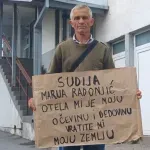 SUDIJA
MARIJA RADONJIĆ
OTELA MI JE MOJU
OČEVINU I ĐEDOVINU
VRATITE MI
MOJU ZEMLJU